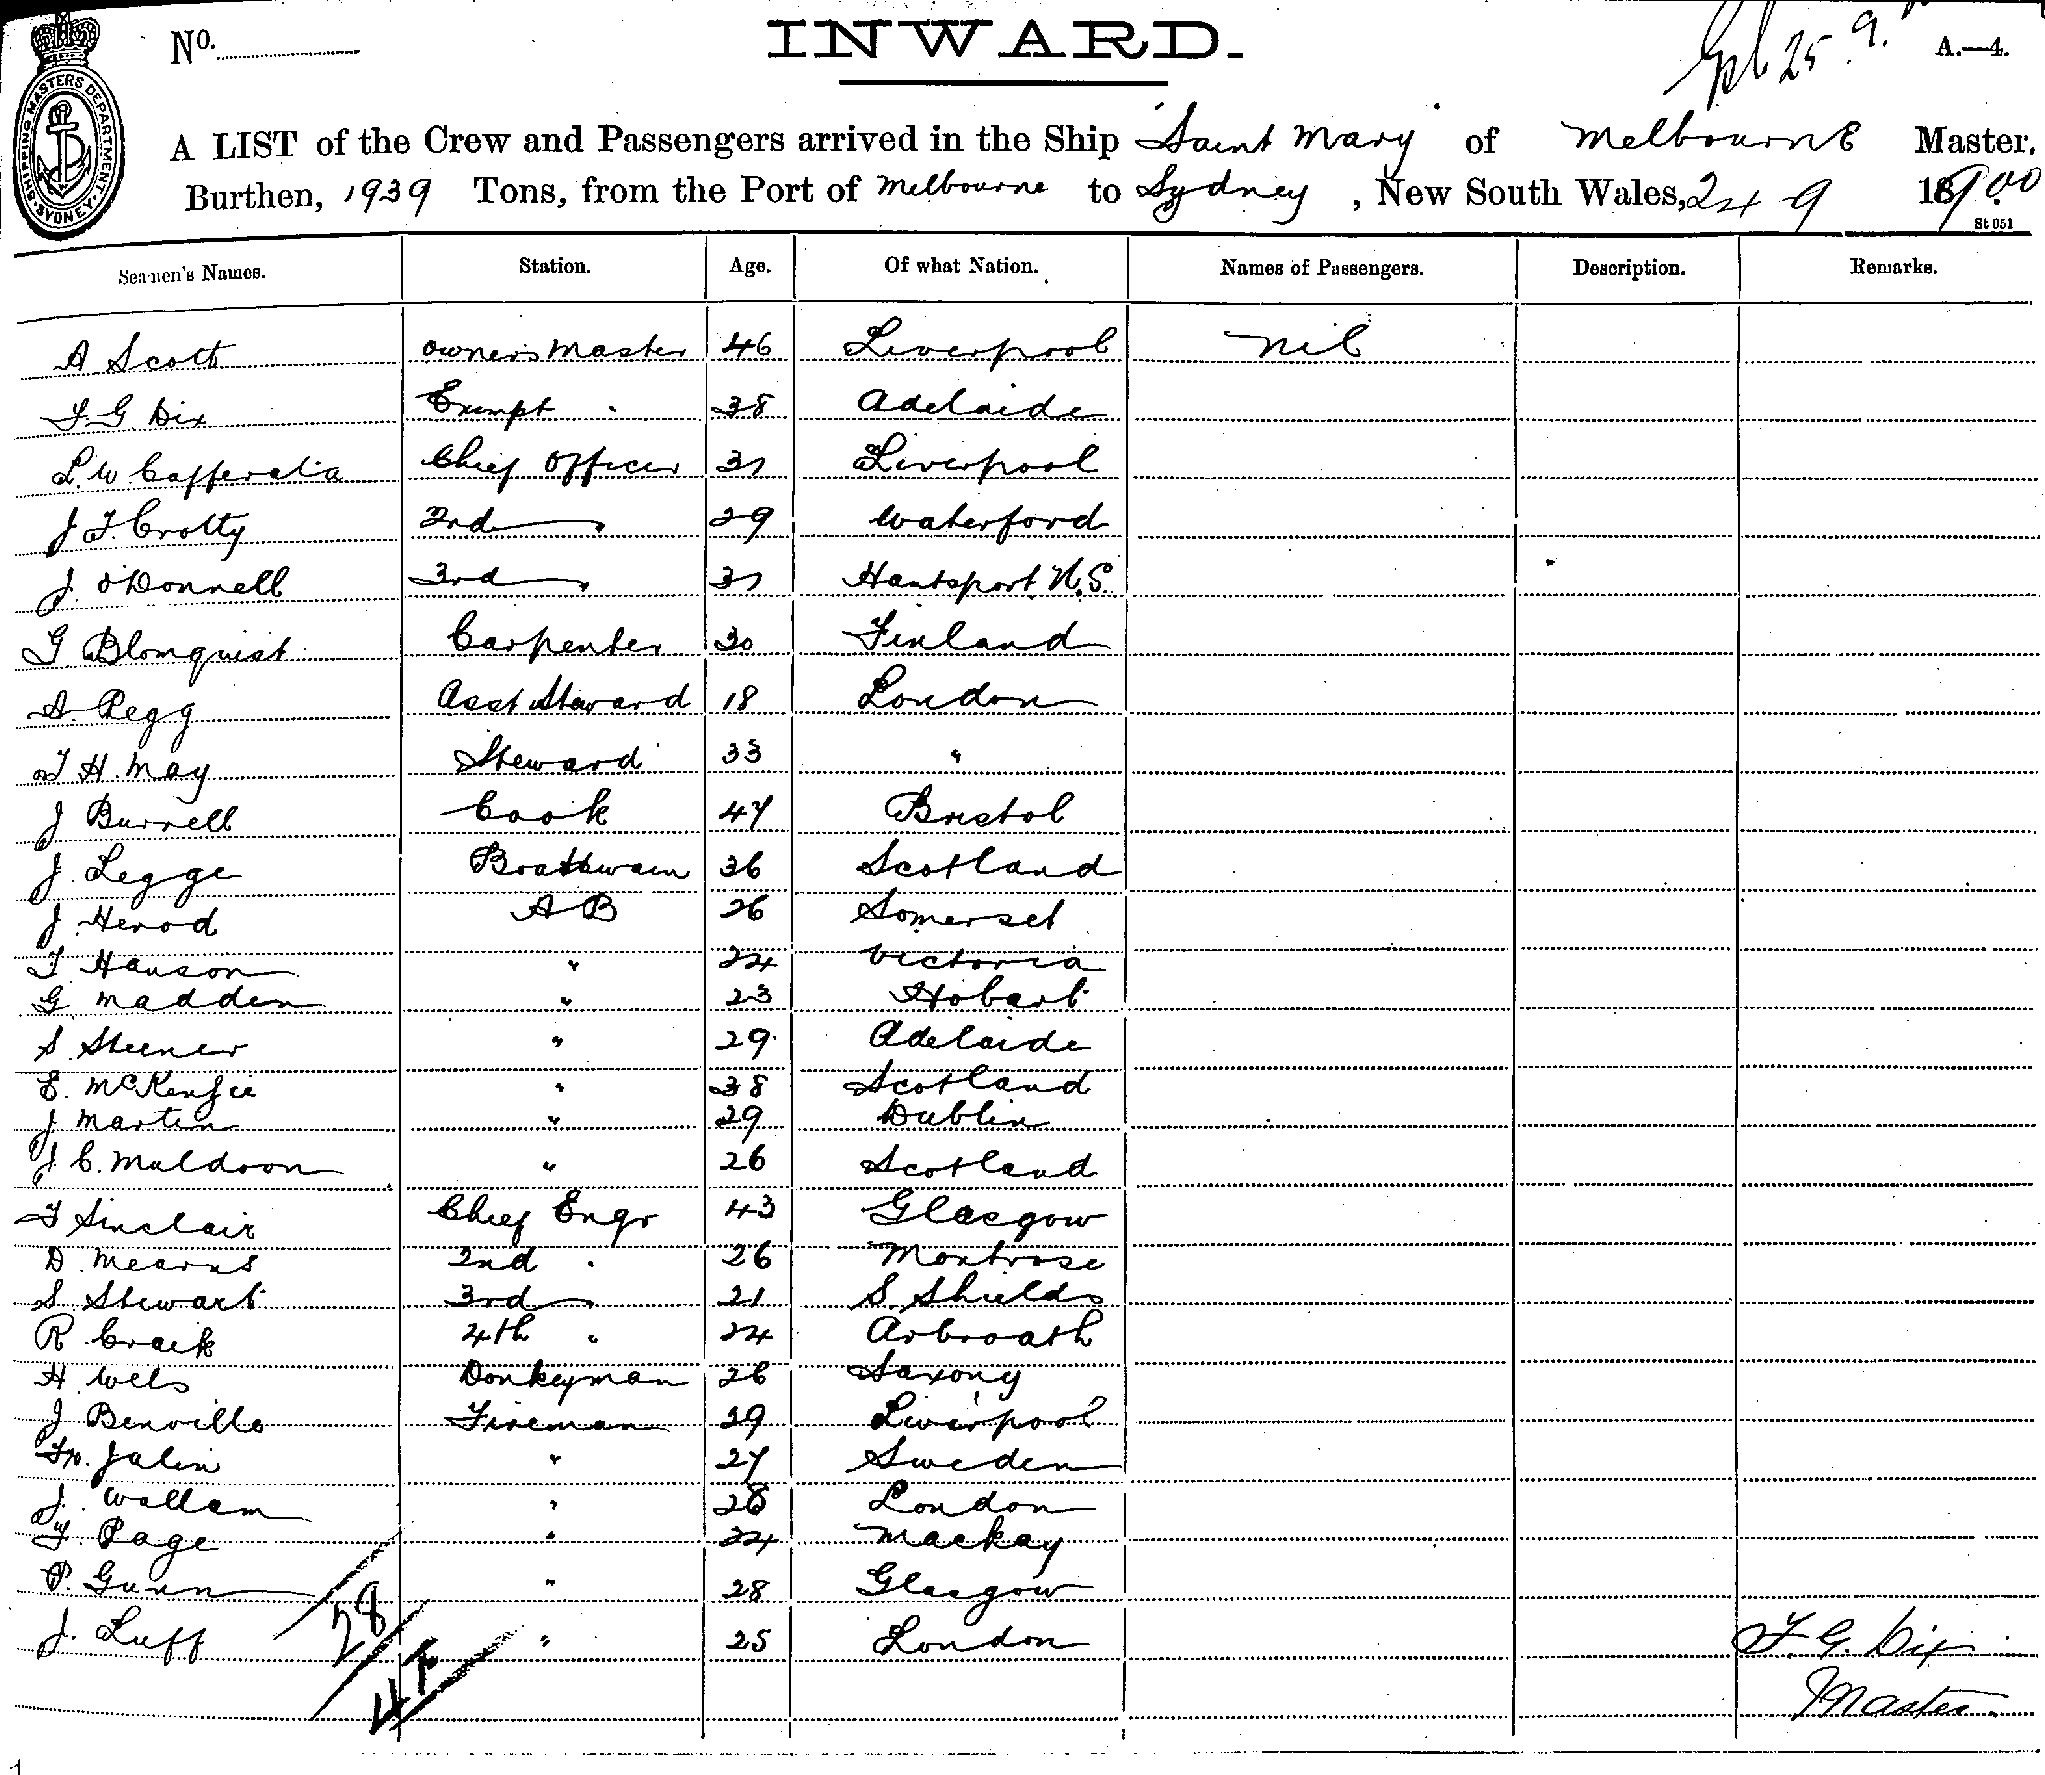 No.
INWARD.
25 9.
A.—4.
SHIPPING MASTERS DEPARTMENT. SYDNEY.
A LIST of the Crew and Passengers arrived in the Ship "Saint Mary" of Melbourne Master,
Burthen, 1939 Tons, from the Port of Melbourne to Sydney, New South Wales, 24 9 1900
St 051
Seamen's Names. Station. Age. Of what Nation. Names of Passengers. Description. Remarks.
A Scott owners Master 46 Liverpool nil
F G Dix Exempt " 38 Adelaide
L. W Cafferata Chief Officer 37 Liverpool
J F. Crotty 2nd " 29 Waterford
J. O'Donnell 3rd " 37 Hantsport N.S.
G Blomquist Carpenter 30 Finland
A. Pegg Asst Steward 18 London
T H. May Steward 33 "
J Burrell Cook 47 Bristol
J. Legge Boatswain 36 Scotland
J. Herod A B 26 Somerset
T Hanson " 24 Victoria
G Madden " 23 Hobart
S. Steener " 29 Adelaide
E. McKenzie " 38 Scotland
J Martin " 29 Dublin
J C. Muldoon " 26 Scotland
T Sinclair Chief Engr 43 Glasgow
D. Mearns 2nd " 26 Montrose
S. Stewart 3rd " 21 S. Shields
R Craik 4th " 24 Arbroath
H. Wels Donkeyman 26 Saxony
J Benville Fireman 29 Liverpool
Fr. Jalin " 27 Sweden
J. Wallam " 28 London
F. Page " 24 Mackay
P. Gunn " 28 Glasgow
J. Luff " 25 London
28
F. G. Dix
Master.